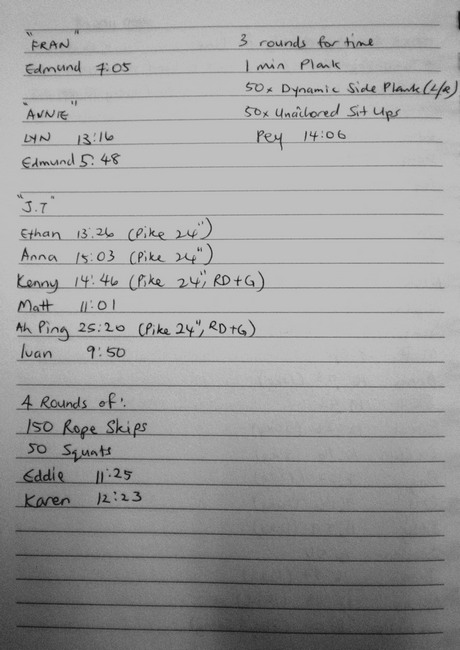 "FRAN"
Edmund 7:05
"ANNIE"
LYN 13:16
Edmund 5:48
3 rounds for time
1 min Plank
50x Dynamic Side Plank (L/R)
50x Unachored Sit Ups
Pey 14:06
"J.T"
Ethan 13:26 (Pike 24")
Anna 15:03 (Pike 24")
Kenny 14:46 (Pike 24", RD+G)
Matt 11:01
Ah Ping 25:20 (Pike 24", RD+G)
Ivan 9:50
4 Rounds of:
150 Rope Skips
50 Squats
Eddie 11:25
Karen 12:23